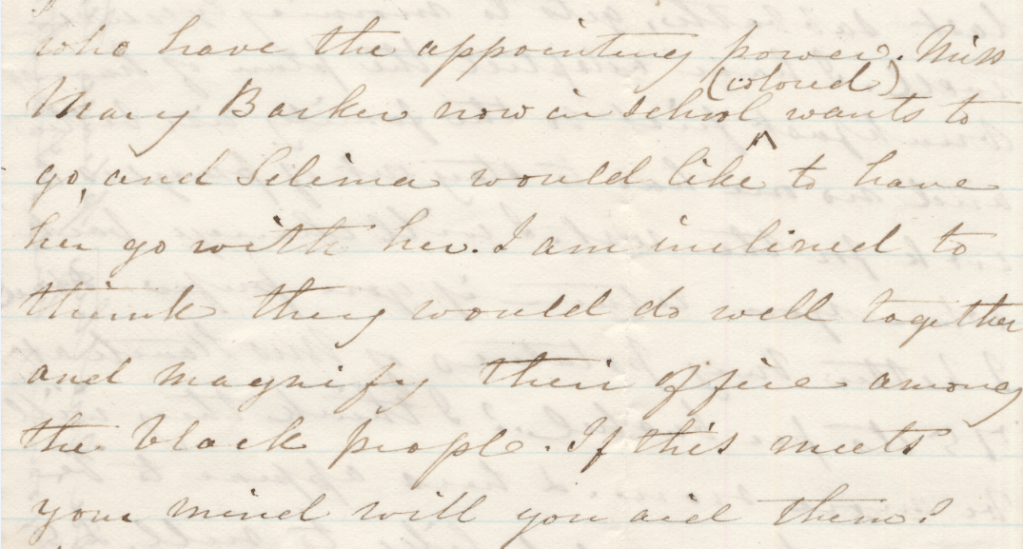 who have the appointing power. Miss
(colored)
Mary Barker now in school ^ wants to
go, and Selima would like to have
her go with her. I am inclined to
think they would do well together
and magnify their office among
the black people. If this meets
your mind will you aid them?